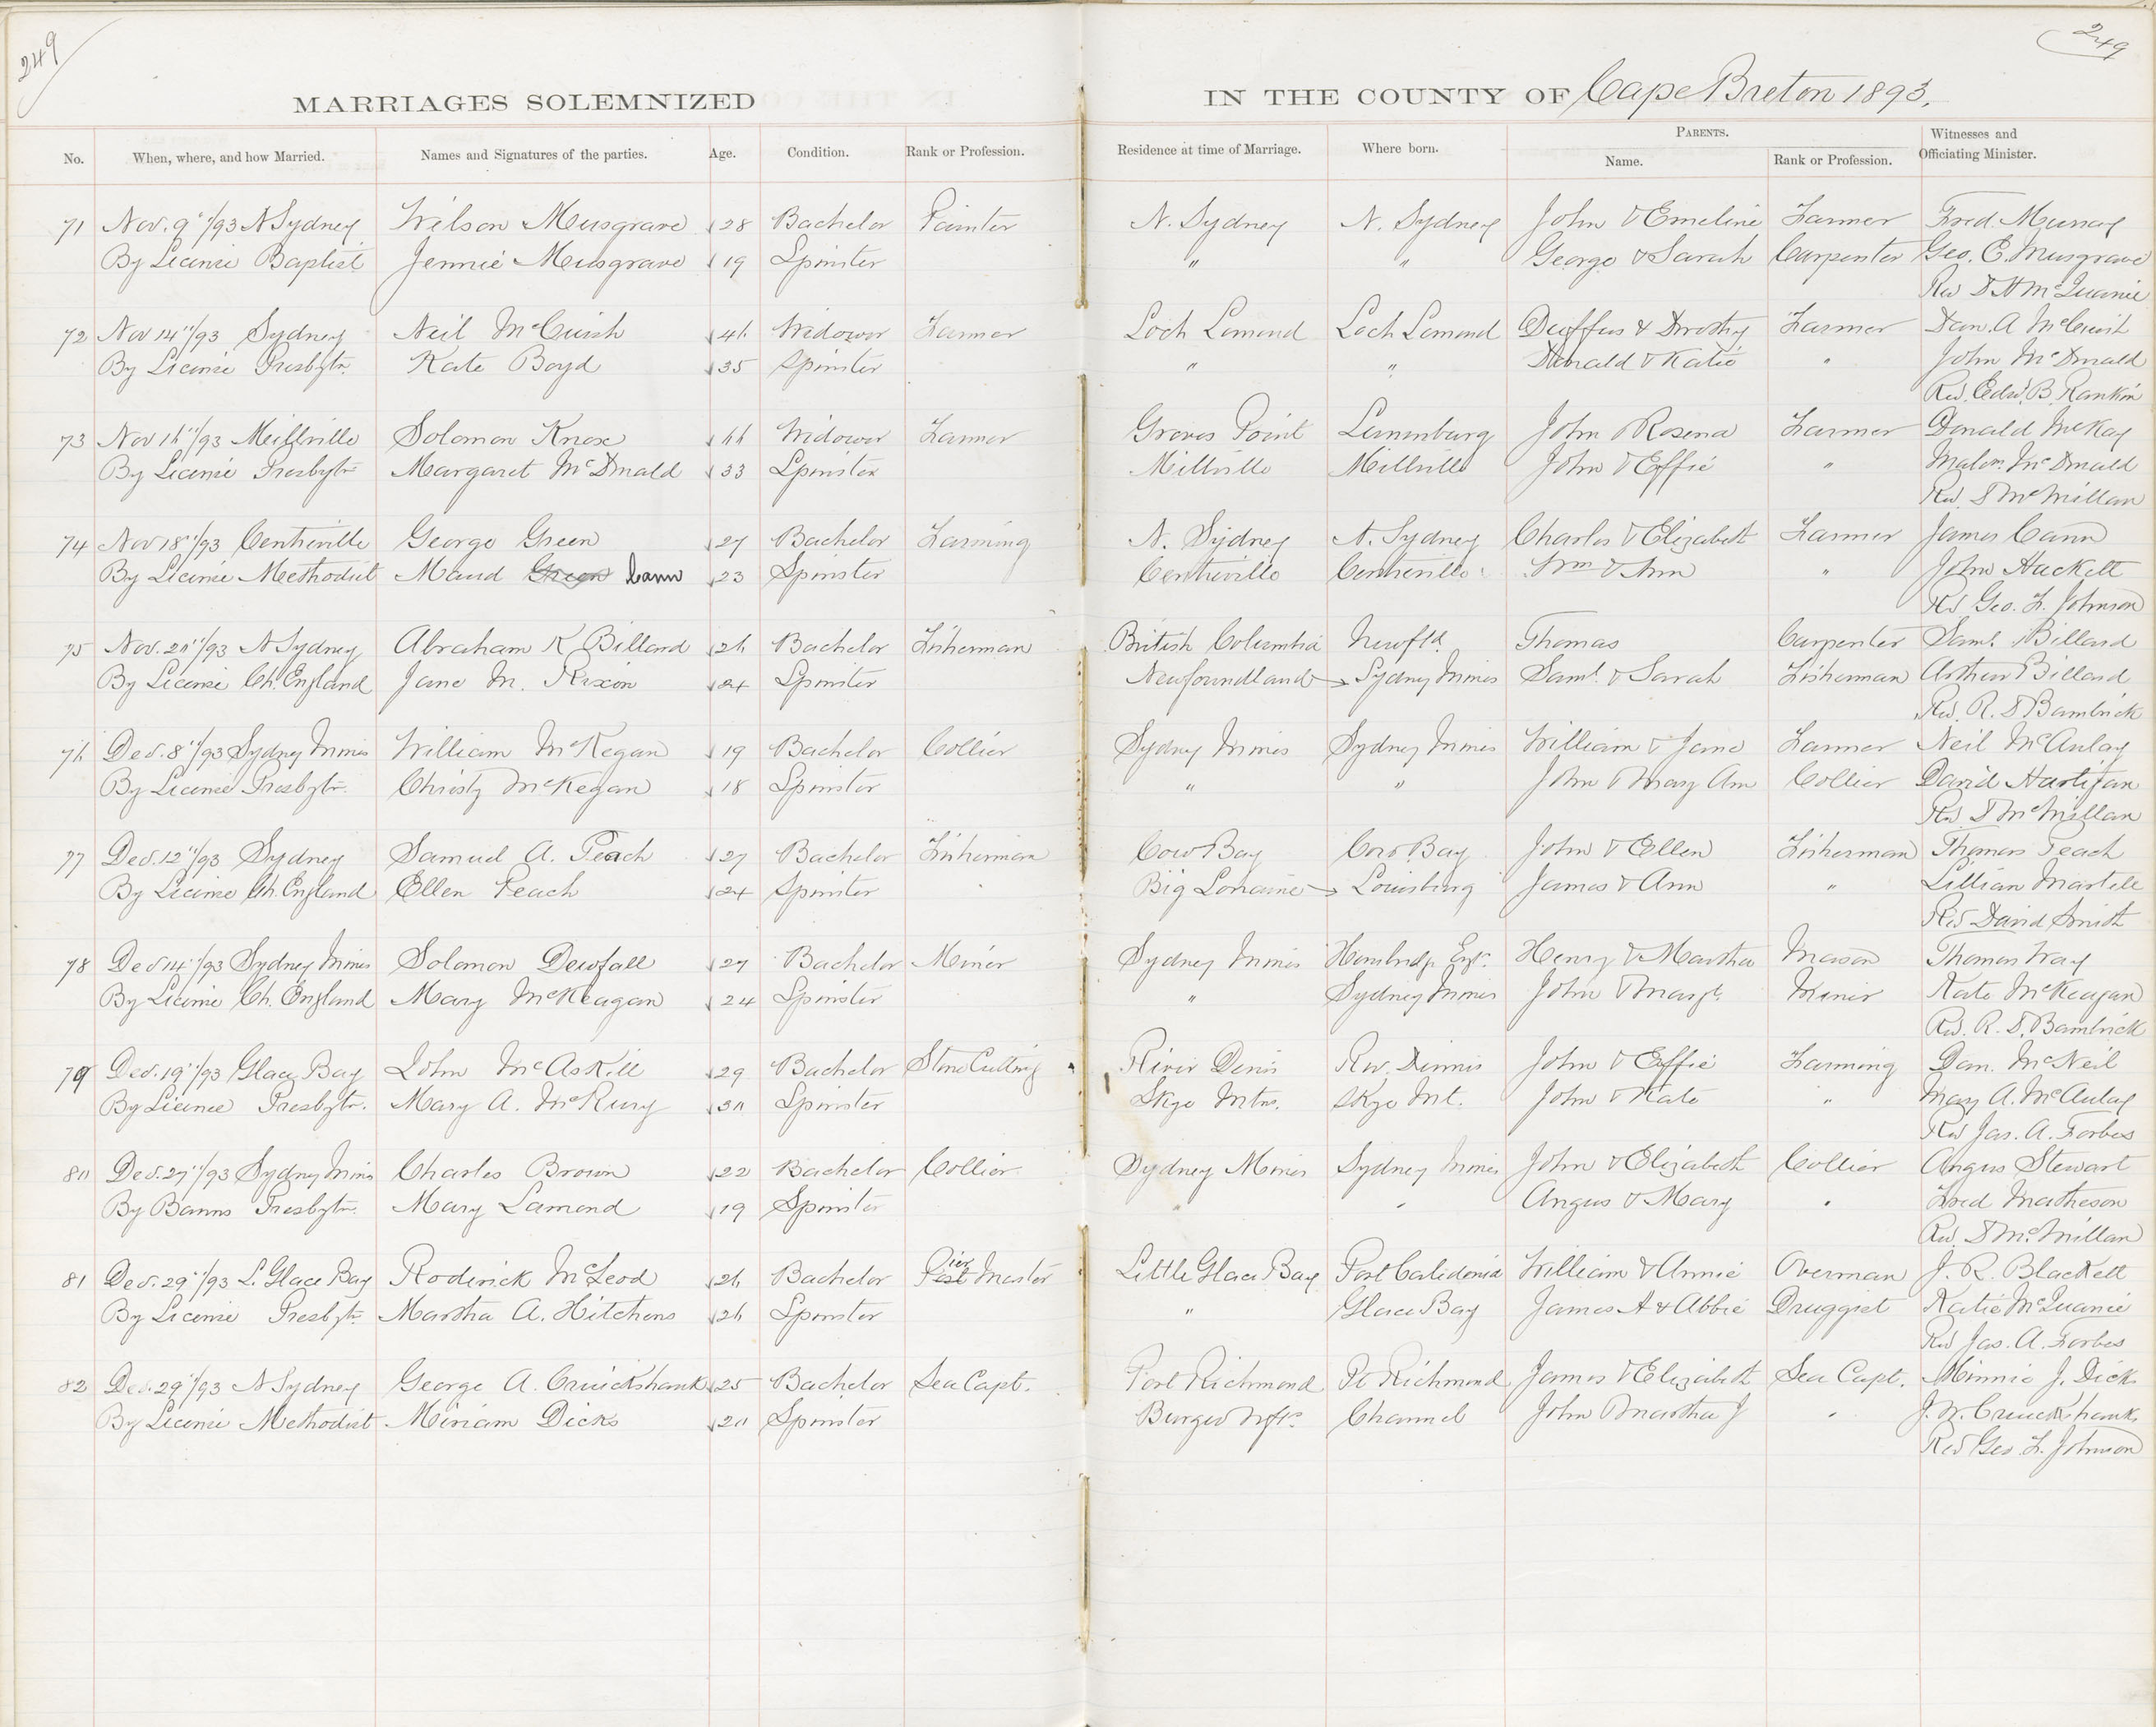 249
249
MARRIAGES SOLEMNIZED IN THE COUNTY OF Cape Breton 1893.
No. When, where, and how Married. Names and Signatures of the parties. Age. Condition. Rank or Profession. Residence at time of Marriage. Where born. PARENTS. Name. Rank or Profession. Witnesses and Officiating Minister.
71 Nov. 9"/93 N Sydney Wilson Musgrave 28 Bachelor Painter N. Sydney N. Sydney John & Emeline Farmer Fred. Murray
By License Baptist Jennie Musgrave 19 Spinster " " George & Sarah Carpenter Geo. E. Musgrave
Rev D H McQuarrie
72 Nov 14"/93 Sydney Neil McCuish 46 Widower Farmer Loch Lomond Loch Lomond Duffus & Dorothy Farmer Dan. A McCuish
By License Presbytn. Kate Boyd 35 Spinster " " Donald & Katie " John McDonald
Rev. Edw. B. Rankin
73 Nov 16"/93 Millville Solomon Knox 66 Widower Farmer Groves Point Lunenburg John & Rosena Farmer Donald McKay
By License Presbytn Margaret McDonald 33 Spinster Millville Millville John & Effie " Malcm. McDonald
Rev. D McMillan
74 Nov 18"/93 Centreville George Green 27 Bachelor Farming N. Sydney N. Sydney Charles & Elizabeth Farmer James Cann
By License Methodist Maud Green Cann 23 Spinster Centreville Centreville Wm & Ann " John Hackett
Rev Geo. F. Johnson
75 Nov. 20"/93 N Sydney Abraham K Billard 26 Bachelor Fisherman British Columbia Newfld. Thomas Carpenter Saml. Billard
By License Ch. England Jane M. Rixon 24 Spinster Newfoundland Sydney Mines Saml & Sarah Fisherman Arthur Billard
Rev. R. D Bambrick
76 Dec. 8"/93 Sydney Mines William McKegan 19 Bachelor Collier Sydney Mines Sydney Mines William & Jane Farmer Neil McAulay
By License Presbytn. Christy McKegan 18 Spinster " " John & Mary Ann Collier David Hartigan
Rev D McMillan
77 Dec. 12"/93 Sydney Samuel A. Peach 27 Bachelor Fisherman Cow Bay Cow Bay John & Ellen Fisherman Thomas Peach
By License Ch. England Ellen Peach 24 Spinster Big Lorraine Louisburg James & Ann " Lillian Martell
Rev David Smith
78 Dec 14"/93 Sydney Mines Solomon Dewfall 27 Bachelor Miner Sydney Mines Engd. Henry & Martha Mason Thomas Way
By License Ch. England Mary McKeagan 24 Spinster " Sydney Mines John & Margt. Miner Kate McKeagan
Rev. R. D. Bambrick
79 Dec. 19"/93 Glace Bay John McAskill 29 Bachelor Stone Cutting River Denis Riv. Dinnis John & Effie Farming Dan. McNeil
By License Presbytn. Mary A. McRury 30 Spinster Skye Mtn. Skye Mt. John & Kate " Mary A. McAulay
Rev Jas. A. Forbes
80 Dec. 27"/93 Sydney Mines Charles Brown 22 Bachelor Collier Sydney Mines Sydney Mines John & Elizabeth Collier Angus Stewart
By Banns Presbytn. Mary Lamond 19 Spinster " " Angus & Mary " Fred Matheson
Rev. D McMillan
81 Dec. 29"/93 L. Glace Bay Roderick McLeod 26 Bachelor Post Pier Master Little Glace Bay Port Calidonia William & Annie Overman J. R. Blackett
By License Presbytn. Martha A. Hitchens 26 Spinster " Glace Bay James A & Abbie Druggist Katie McQuarrie
Rev Jas. A. Forbes
82 Dec. 29"/93 N Sydney George A. Cruickshank 25 Bachelor Sea Capt. Port Richmond Pt Richmond James & Elizabeth Sea Capt. Minnie J. Dicks
By License Methodist Miriam Dicks 20 Spinster Burgeo Nfd. Channel John & Martha J " J. W. Cruickshank
Rev Geo. F. Johnson